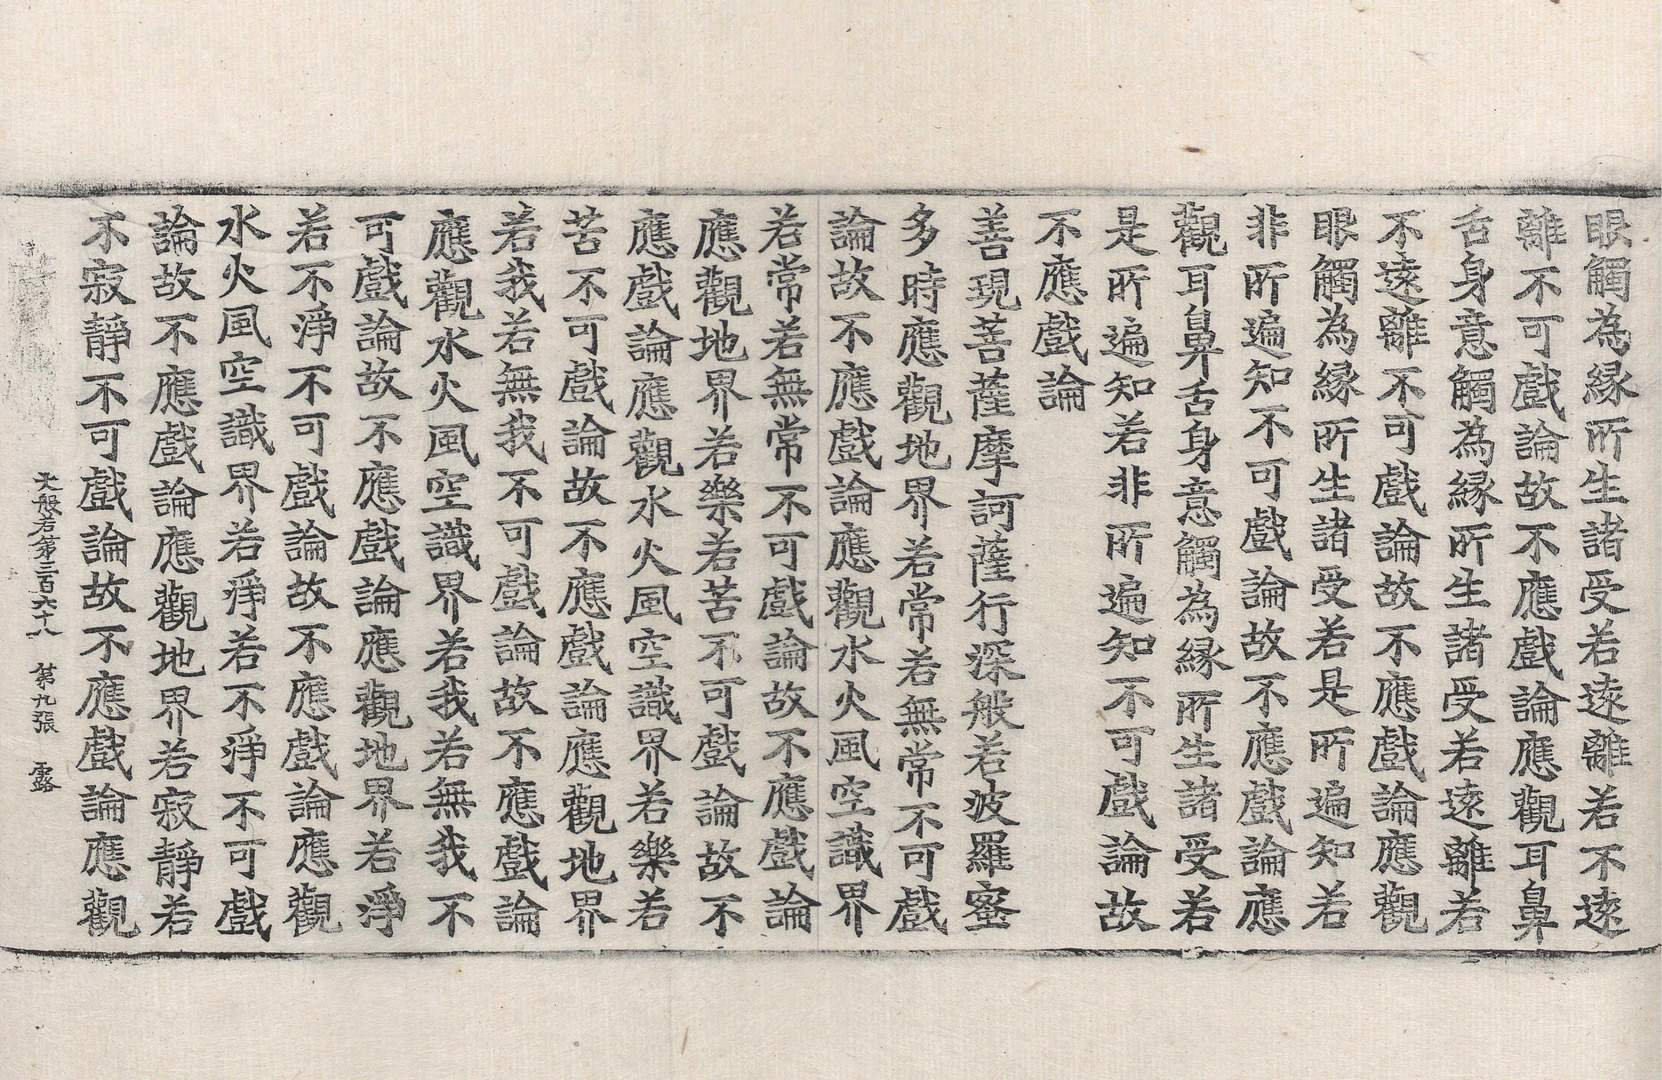 眼觸為縁所生諸受若遠離若不遠
離不可戲論故不應戲論應觀耳鼻
舌身意觸為縁所生諸受若遠離若
不遠離不可戲論故不應戲論應觀
眼觸為縁所生諸受若是所遍知若
非所遍知不可戲論故不應戲論應
觀耳鼻舌身意觸為縁所生諸受若
是所遍知若非所遍知不可戲論故
不應戲論
善現菩薩摩訶薩行深般若波羅蜜
多時應觀地界若常若無常不可戲
論故不應戲論應觀水火風空識界
若常若無常不可戲論故不應戲論
應觀地界若樂若苦不可戲論故不
應戲論應觀水火風空識界若樂若
苦不可戲論故不應戲論應觀地界
若我若無我不可戲論故不應戲論
應觀水火風空識界若我若無我不
可戲論故不應戲論應觀地界若淨
若不淨不可戲論故不應戲論應觀
水火風空識界若淨若不淨不可戲
論故不應戲論應觀地界若寂靜若
不寂靜不可戲論故不應戲論應觀
大般若第三百六十八 第九張 露